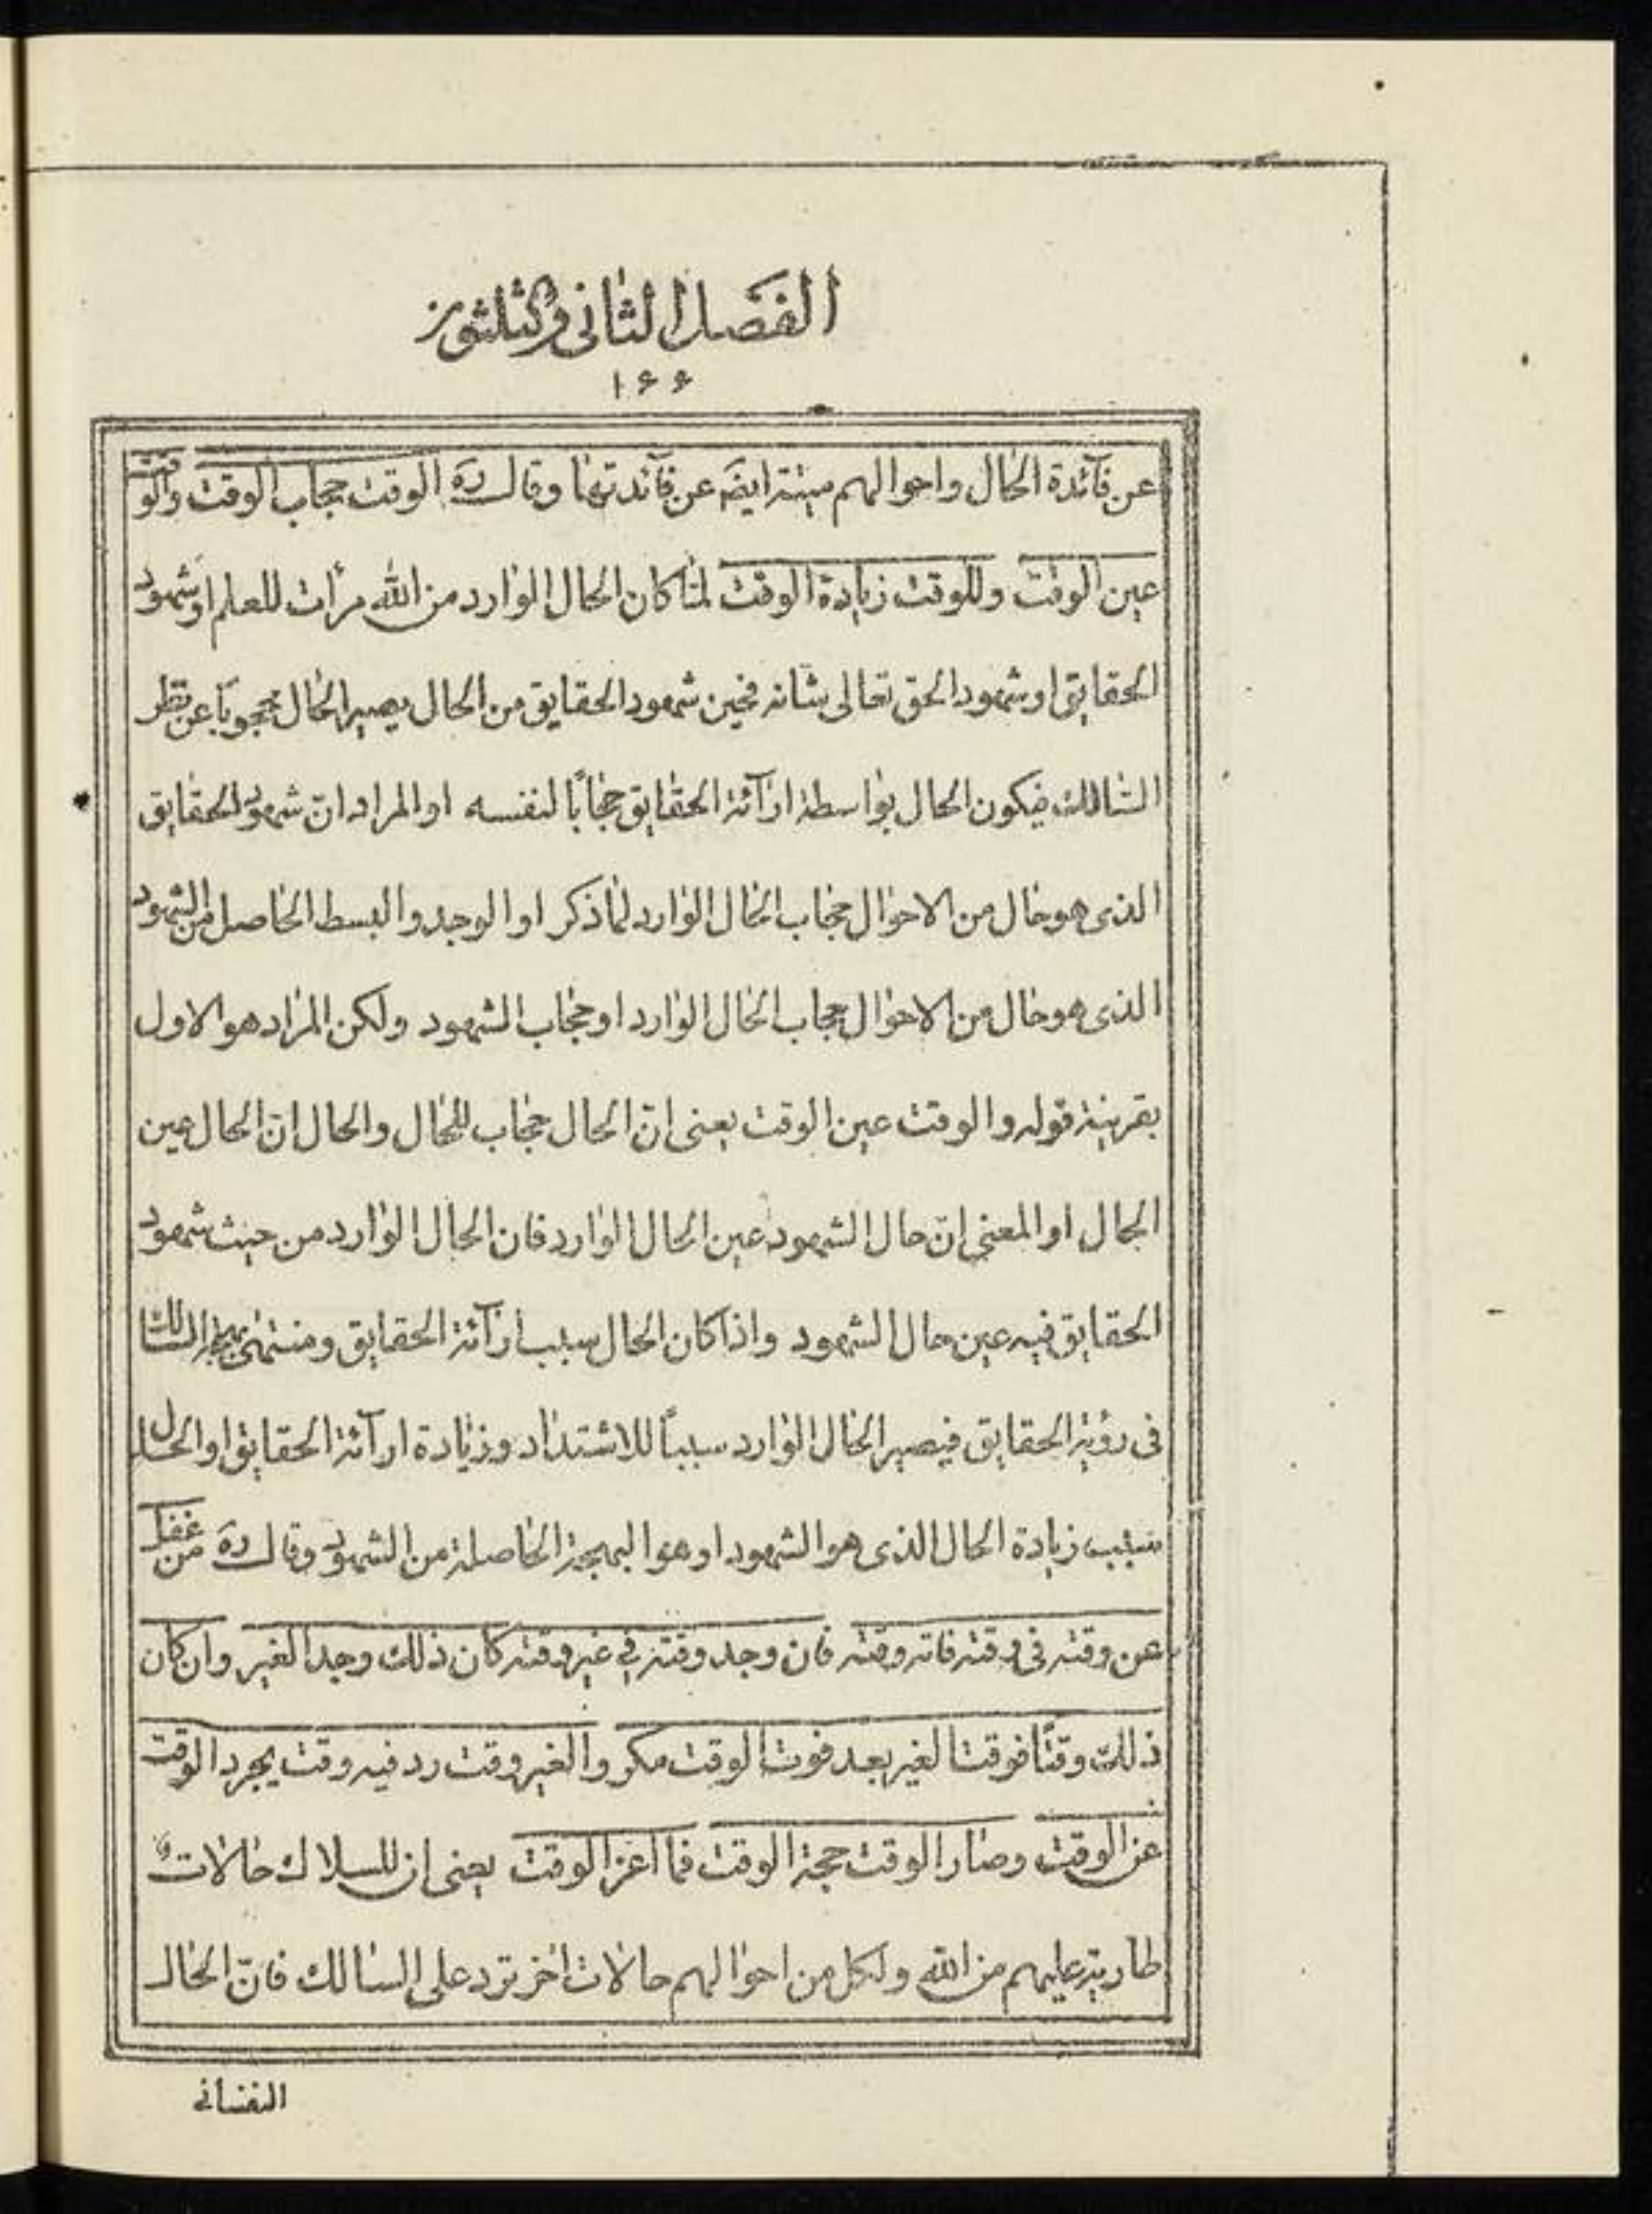 الفصل الثانی والثلثون
۱۶۶
عن فآئدة الحال واحوالهم مبینة ایضً عن فآئدتها وقال ره الوقت حجاب الوقت والوقت
عین الوقت وللوقت زیادة الوقت لمّا کان الحال الوارد من الله مرأت للعلم او شهود
الحقایق او شهود الحق تعالی شانه فحین شهود الحقایق من الحال یصیر الحال محجوبًا عن نظر
السّالک فیکون الحال بواسطة ارآئة الحقایق حجابًا لنفسه او المراد انّ شهود الحقایق
الذی هو حال من الاحوال حجاب الحال الوارد لما ذکر او الوجد والبسط الحاصل من الشهود
الذی هو حال من الاحوال حجاب الحال الوارد او حجاب الشهود ولکن المراد هو الاول
بقرینة قوله والوقت عین الوقت یعنی انّ الحال حجاب للحال والحال انّ الحال عین
الحال او المعنی انّ حال الشهود عین الحال الوارد فان الحال الوارد من حیث شهود
الحقایق فیه عین حال الشهود واذا کان الحال سبب ارآئة الحقایق ومنتهی بهجة السالک
فی رؤیة الحقایق فیصیر الحال الوارد سببًا للاشتداد وزیادة ارآئة الحقایق او الحال
سبب زیادة الحال الذی هو الشهود او هو البهجة الحاصلة من الشهود وقال ره من غفل
عن وقته فی وقته فاته وقته فان وجد وقته فی غیر وقته کان ذلک وجد الغیر وان کان
ذلک وقتًا فوقت الغیر بعد فوت الوقت مکر والغیر وقت رد فیه وقت یجرد الوقت
عن الوقت وصار الوقت حجة الوقت فما اعز الوقت یعنی ان للسلاک حالات
طاریة علیهم من الله ولکل من احوالهم حالات اخر ترد علی السالک فانّ الحال
النفسانی